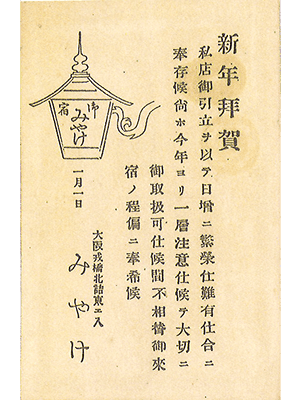 新年拜賀
私店御引立ヲ以テ日增ニ繁榮仕難有仕合ニ
奉存候尚ホ今年ヨリ一層注意仕候テ大切ニ
御取扱可仕候間不相替御來
宿ノ程偏ニ奉希候
御宿
みやけ
一月一日
大阪戎橋北詰東エ入
みやけ